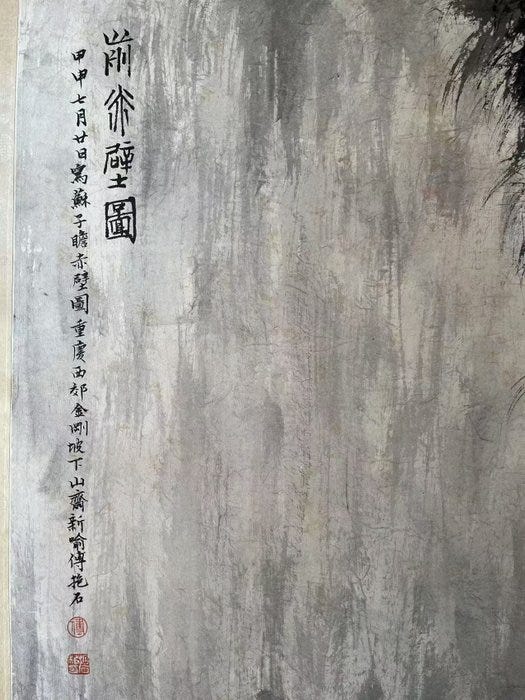 前赤壁圖
甲申七月廿日寫蘇子瞻赤壁圖重慶西郊金剛坡下山齋新喻傅抱石
傅